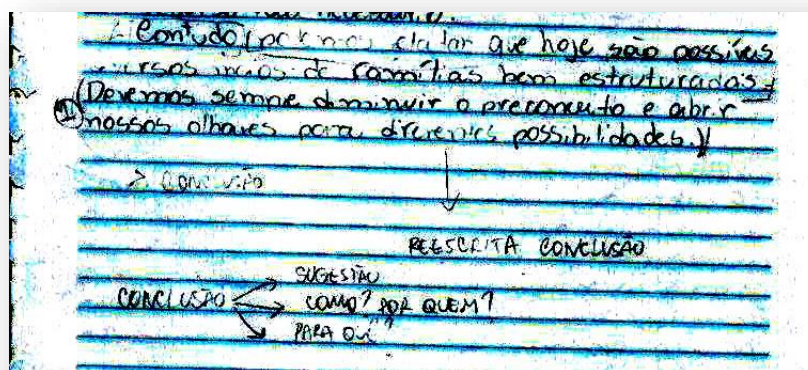 Contudo, podemos citar que hoje são possíveis
meios de famílias bem estruturadas.
Devemos sempre diminuir o preconceito e abrir
nossos olhares para diferentes possibilidades.
> CONCLUSÃO
REESCRITA CONCLUSÃO
SUGESTÃO
CONCLUSÃO COMO? POR QUEM?
PARA QUÊ?